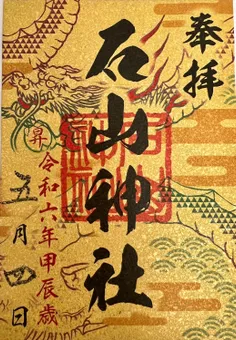 奉拝
石山神社
昇
令和六年甲辰歳
五月四日